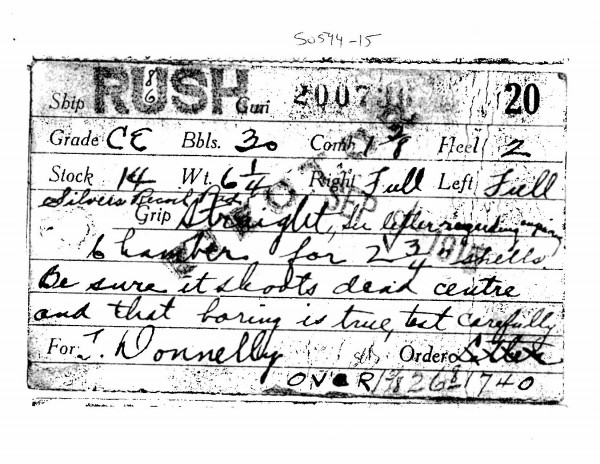 S0594-15
Ship RUSH Gun 2007 20
Grade CE Bbls. 30 Comb 1 5/8 Heel 2
Stock 14 Wt. 6 1/4 Right Full Left Full
Silvers Recoil Pad
Grip Straight, see letter regarding
Chamber for 2 3/4 shells.
Be sure it shoots dead centre
and that boring is true, test carefully
For T. Donnelly Order Letter
OVER 26 1740